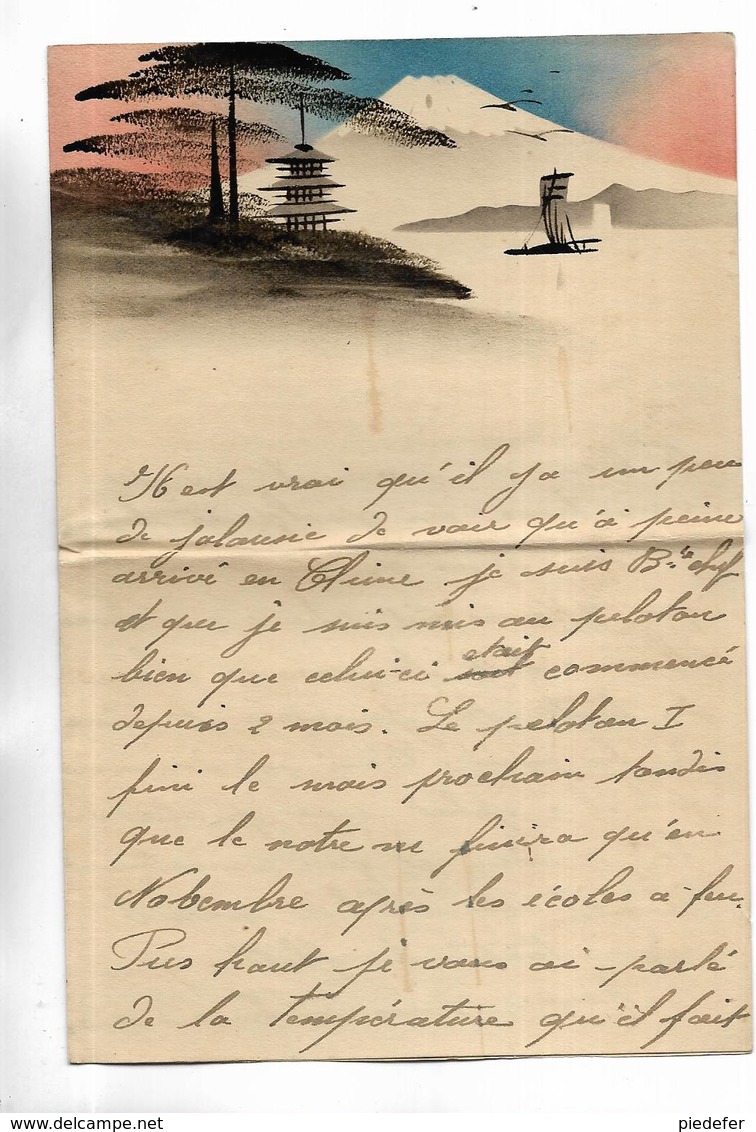 Il est vrai qu'il y a un peu
de jalousie de voir qu'à peine
arrivé en Chine je suis B.re chef
et que je suis mis au peloton
bien que celui-ci etait commencé
depuis 2 mois. Le peloton I
fini le mois prochain tandis
que le notre ne finira qu'en
Nobembre après les écoles a feu.
Pus haut je vous ai parlé
de la température qu'il fait
piedefer